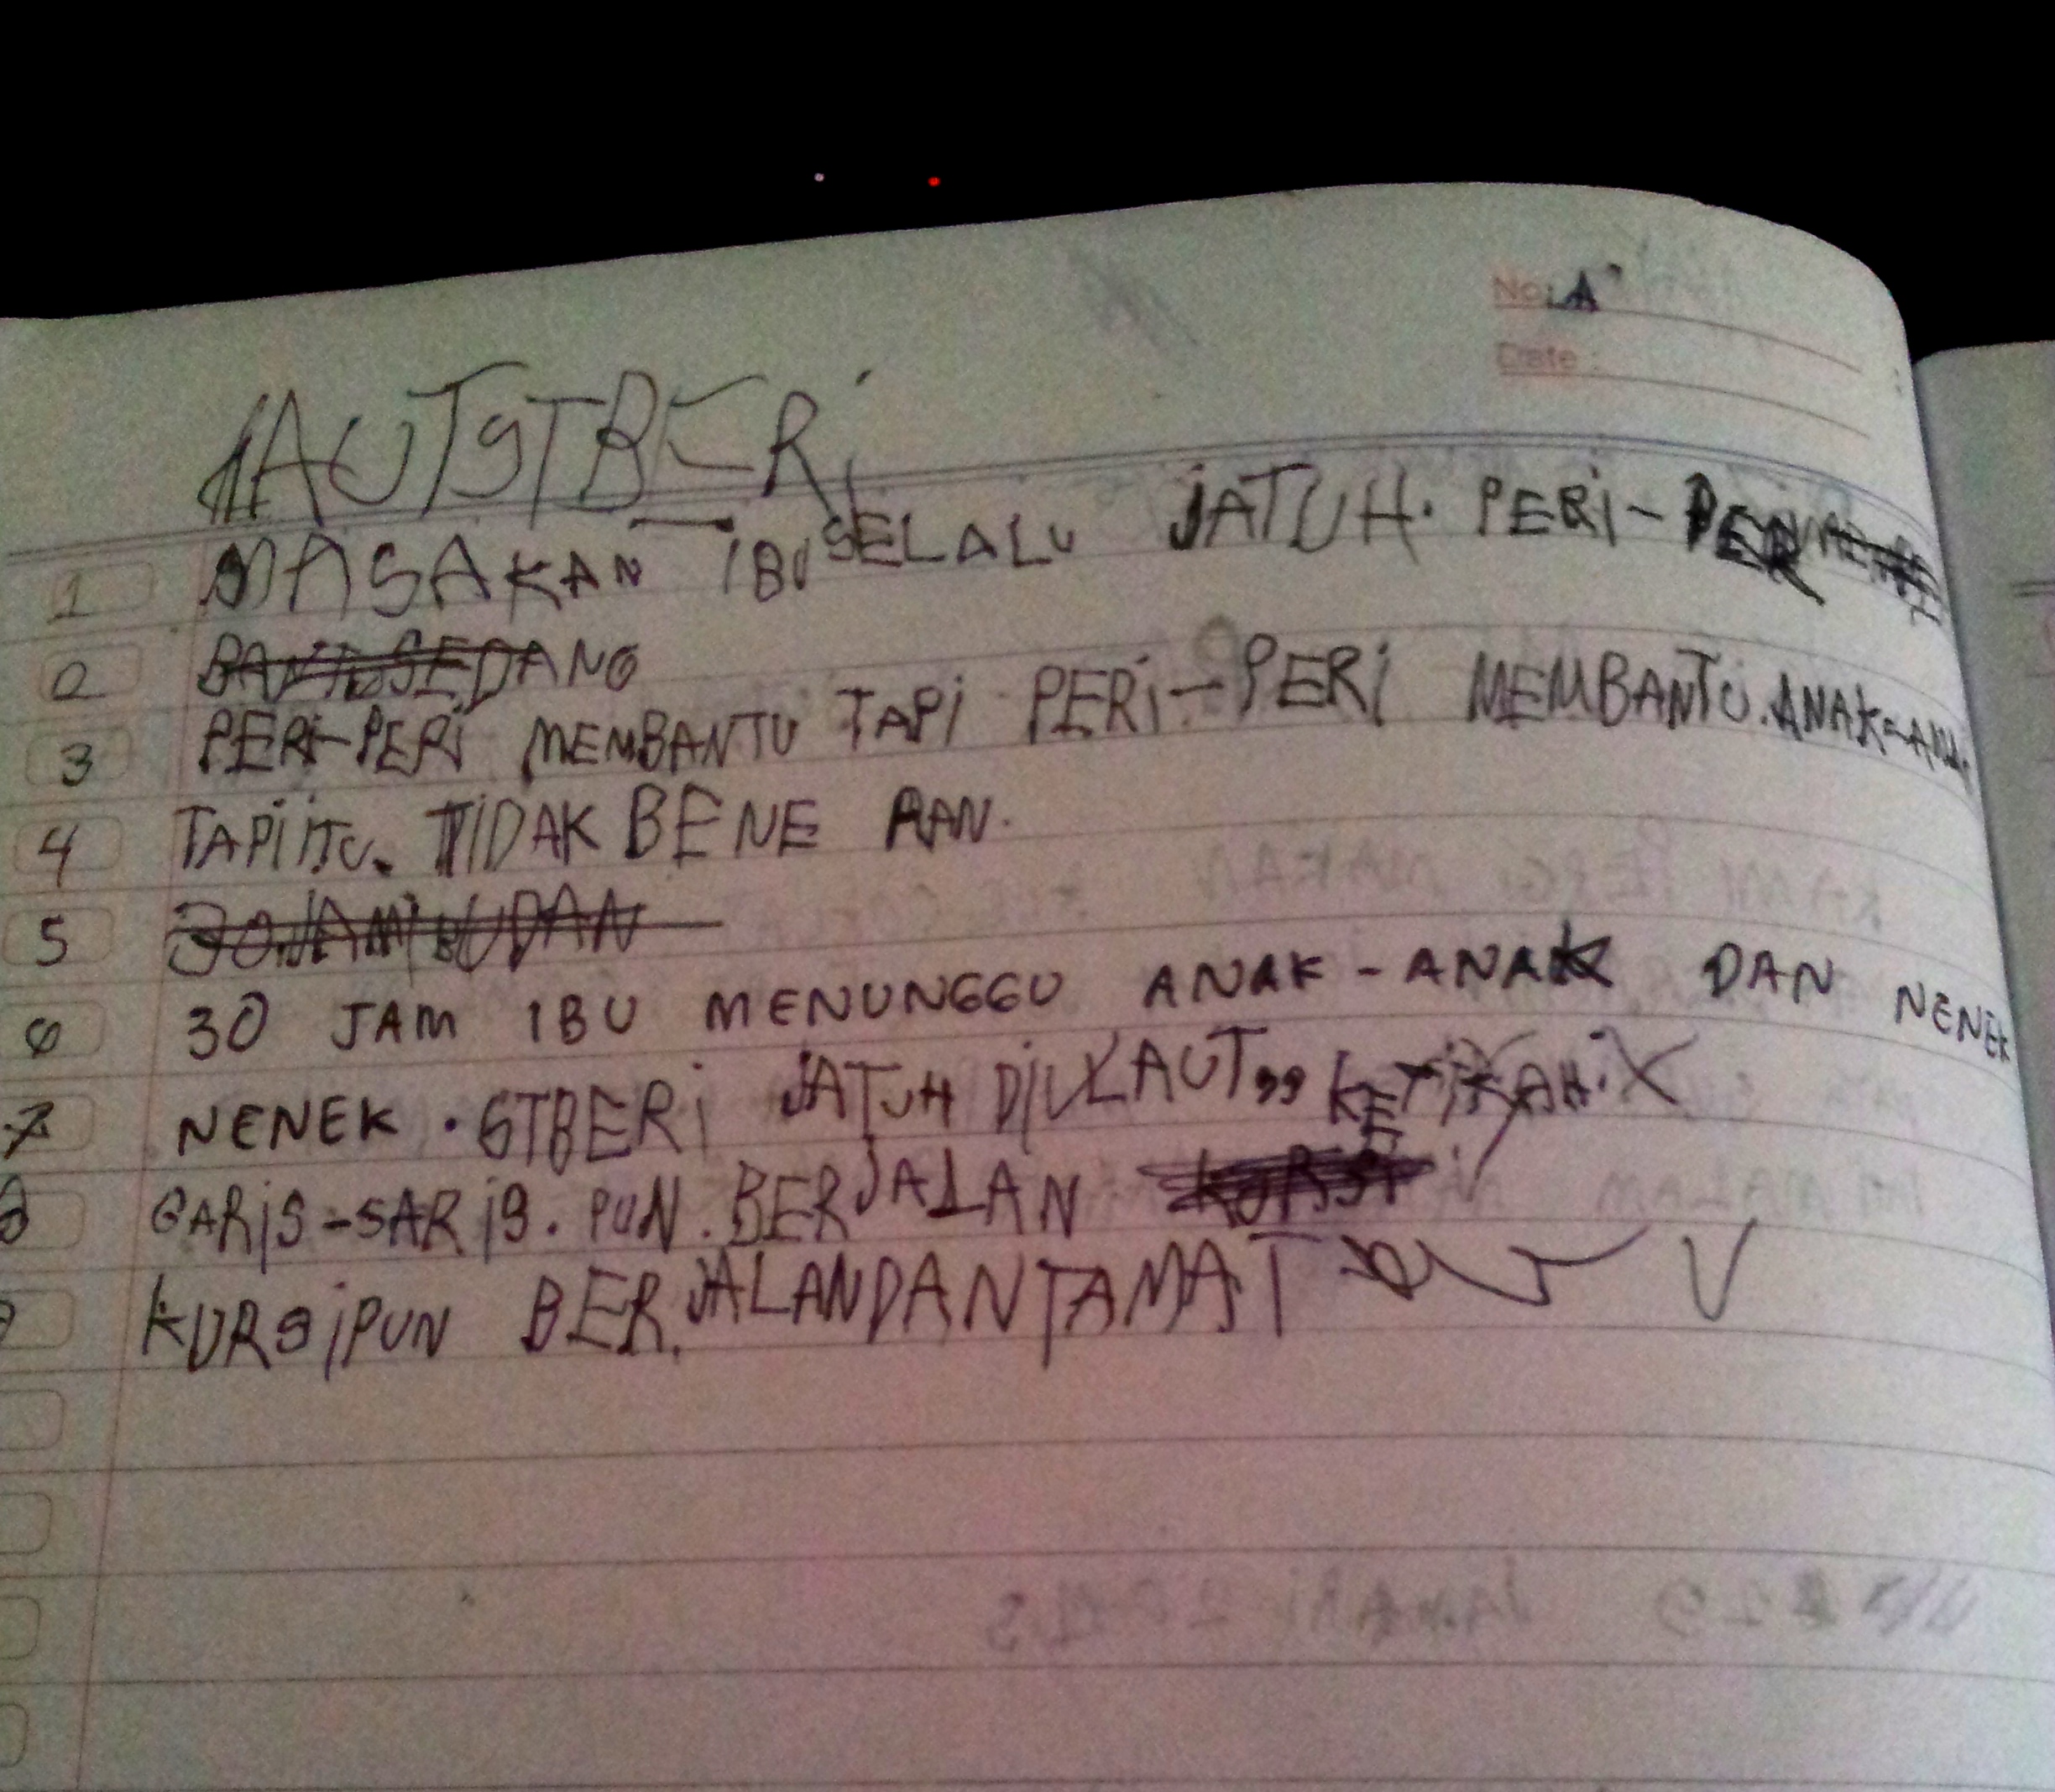 No: A
Date :
LAUT STBERI
MASAKAN IBU SELALU JATUH. PERI-PER
SEDANG
1
2
3 PERI-PERI MEMBANTU TAPI PERI-PERI MEMBANTU. ANAK-ANAK
4 TAPI ITU. TIDAK BENE RAN.
5 30 JAM
6 30 JAM IBU MENUNGGU ANAK-ANAK DAN NENEK
7 NENEK. STBERI JATUH DI LAUT,,
8 GARIS-SARIS. PUN. BERJALAN KURSI
KURSIPUN BERJALAN DAN TAMAT